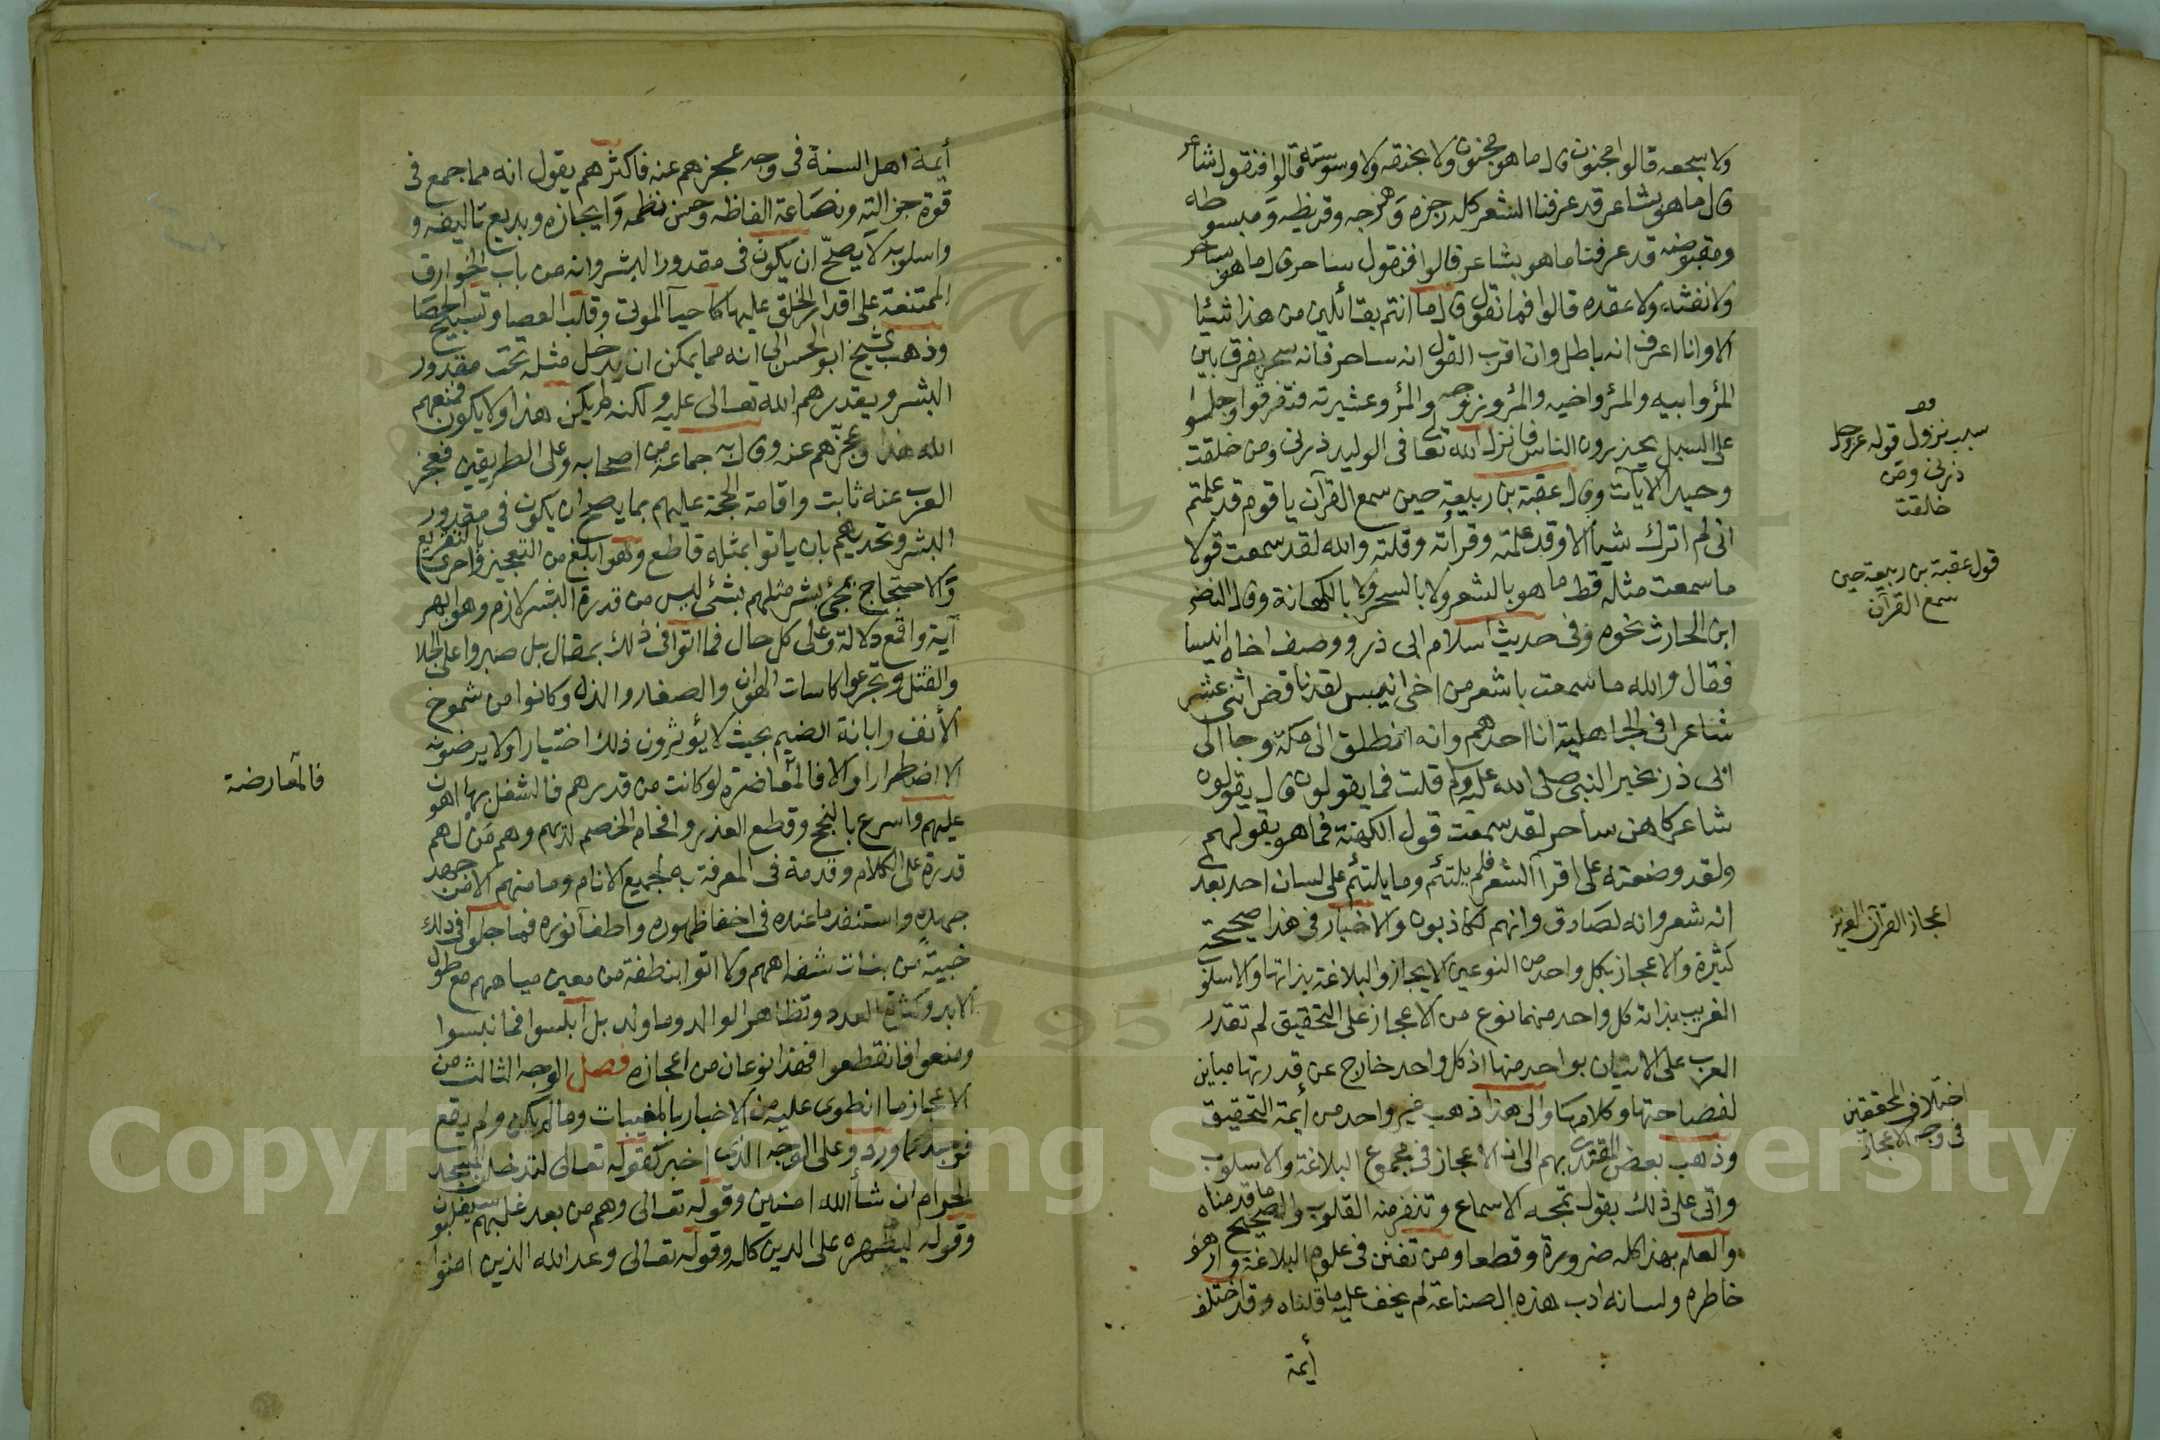 ولا سجعه قالوا مجنون قال ما هو بمجنون ولا بخنقه ولا وسوسته قالوا فنقول شاعر
قال ما هو بشاعر قد عرفنا الشعر كله رجزه وهزجه وقريظه ومبسوطه
ومقبوضه قد عرفنا ما هو بشاعر قالوا فنقول ساحر قال ما هو بساحر
ولا نفثه ولا عقده قالوا فما نقول قال ما انتم بقائلين من هذا شيئا
الا وانا اعرف انه باطل وان اقرب القول انه ساحر فانه سحر يفرق بين
المرؤ وابيه والمرؤ واخيه والمرؤ وزوجه والمرؤ وعشيرته فتفرقوا وجلسوا
على السبل يحذرون الناس فانزل الله تعالى في الوليد ذرني ومن خلقت
وحيدا الآيات وقال عقبة بن ربيعة حين سمع القرآن يا قوم قد علمتم
انى لم اترك شيأ الا وقد علمته وقرأته وقلته والله لقد سمعت قولا
ما سمعت مثله قط ما هو بالشعر ولا بالسحر ولا بالكهانة وقال النضر
ابن الحارث نحوه وفى حديث اسلام ابى ذر ووصف اخاه انيسا
فقال والله ما سمعت باشعر من اخى انيس لقد ناقض اثنى عشر
شاعرا فى الجاهلية انا احدهم وانه انطلق الى مكة وجا الى
ابى ذر بخبر النبى صلى الله عليه وسلم قلت فما يقولون قال يقولون
شاعر كاهن ساحر لقد سمعت قول الكهنة فما هو بقولهم
ولقد وضعته على اقرآ الشعر فلم يلتئم وما يلتئم على لسان احد بعدى
انه شعر وانه لصادق وانهم لكاذبون والاخبار فى هذا صحيحة
كثيرة والاعجاز بكل واحد من النوعين الايجاز والبلاغة بذاتها والاسلوب
الغريب بذاته كل واحد منهما نوع من الاعجاز على التحقيق لم تقدر
العرب على الاتيان بواحد منها اذ كل واحد خارج عن قدرتها مباين
لفصاحتها وكلامها والى هذا ذهب غير واحد من أيمة التحقيق
وذهب بعض المقتدى بهم الى ان الاعجاز فى مجموع البلاغة والاسلوب
واتى على ذلك بقول تمجه الاسماع وتنفر منه القلوب والصحيح ما قدمناه
والعلم بهذا كله ضرورة وقطعا ومن تفنن فى علوم البلاغة وارهف
خاطره ولسانه ادب هذه الصناعة لم يخف عليه ما قلناه وقد اختلف
أيمة
سبب نزول قوله عز وجل
ذرنى ومن
خلقت
قول عقبة بن ربيعة حين
سمع القرآن
اعجاز القرآن العزيز
اختلاف المحققين
فى وجه الاعجاز
أيمة اهل السنة فى وجه عجزهم عنه فاكثرهم يقول انه مما جمع فى
قوة جزالته ونصاعة الفاظه وحسن نظمه وايجازه وبديع تاليفه و
واسلوبه لا يصح ان يكون فى مقدور البشر وانه من باب الخوارق
الممتنعة على اقدار الخلق عليها كاحيآ الموتى وقلب العصا وتسبيح الحصا
وذهب الشيخ ابو الحسن الى انه مما يمكن ان يدخل مثله تحت مقدور
البشر ويقدرهم الله تعالى عليه ولكنه لم يكن هذا ولا يكون فمنعهم
الله هذا وعجزهم عنه وقال به جماعة من اصحابه وعلى الطريقين فعجز
العرب عنه ثابت واقامة الحجة عليهم بما يصح ان يكون فى مقدور
البشر وتحديهم بان ياتوا بمثله قاطع وهو ابلغ من التعجيز واحرى بالتقريع
والاحتجاج بمجئ بشر مثلهم بشئ ليس من قدرة البشر لازم وهو ابهر
آية واقمع دلالة وعلى كل حال فما اتوا فى ذلك بمقال بل صبروا على الجلا
والقتل وتجرعوا كاسات الهوان والصغار والذل وكانوا من شموخ
الأنف وابانة الضيم بحيث لا يؤثرون ذلك اختيارا ولا يرضونه
الا اضطرارا والا فالمعاضرة لو كانت من قدرهم فالشغل بها اهون
عليهم واسرع بالنجح وقطع العذر وافحام الخصم لديهم وهم من لهم
قدرة على الكلام وقدمة فى المعرفة به لجميع الانام وما منهم الا من جهد
جهده واستنفد ما عنده فى اخفا ظهوره واطفآ نوره فما جلوا فى ذلك
خبيئة من بنات شفاههم ولا اتوا بنطفة من معين مياههم مع طول
الابد وكثرة العدد وتظاهر الوالد وما ولد بل أبلسوا فما نبسوا
ومنعوا فانقطعوا فهذا نوعان من اعجازه فصل الوجه الثالث من
الاعجاز ما انطوى عليه من الاخبار بالمغيبات وما لم يكن ولم يقع
فوجد كما ورد وعلى الوجه الذى اخبر كقوله تعالى لتدخلن المسجد
الحرام ان شأ الله امنين وقوله تعالى وهم من بعد غلبهم سيغلبون
وقوله ليظهره على الدين كله وقوله تعالى وعد الله الذين امنوا
فالمعارضة
Copyright © King Saud University
1957